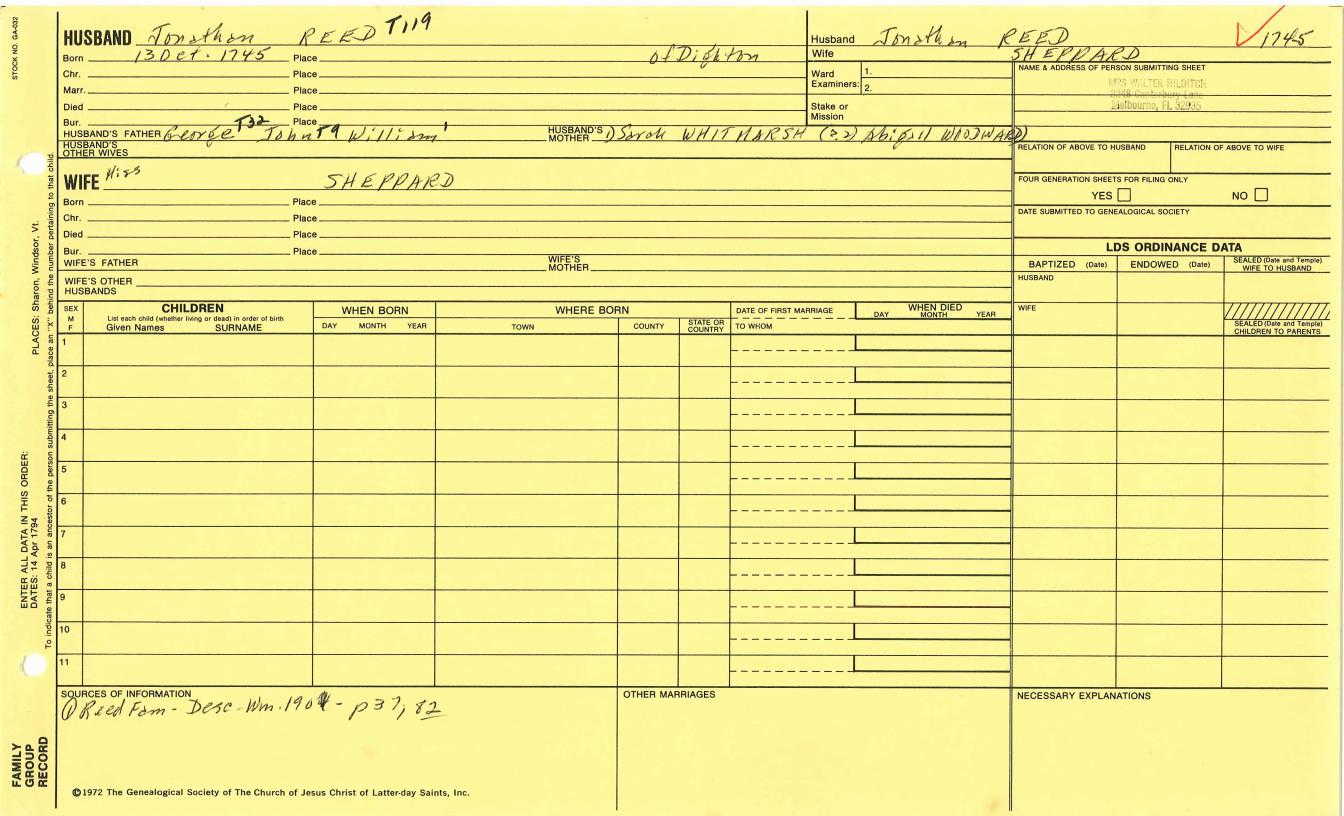 STOCK NO. GA-032
HUSBAND Jonathan REED T119
Born 13 Oct. 1745 Place of Dighton
Chr. Place
Marr. Place
Died Place
Bur. Place
HUSBAND'S FATHER George T32 John T9 William 1 HUSBAND'S MOTHER Sarah WHITMARSH (?2) Abigail WOODWARD)
HUSBAND'S OTHER WIVES
Husband Jonathan REED 1745
Wife SHEPPARD
Ward Examiners: 1.
2.
Stake or Mission
NAME & ADDRESS OF PERSON SUBMITTING SHEET
MRS WALTER
Lane
Melbourne, FL
RELATION OF ABOVE TO HUSBAND RELATION OF ABOVE TO WIFE
FOUR GENERATION SHEETS FOR FILING ONLY
YES NO
DATE SUBMITTED TO GENEALOGICAL SOCIETY
WIFE Miss SHEPPARD
Born Place
Chr. Place
Died Place
Bur. Place
WIFE'S FATHER WIFE'S MOTHER
WIFE'S OTHER HUSBANDS
LDS ORDINANCE DATA
BAPTIZED (Date) ENDOWED (Date) SEALED (Date and Temple) WIFE TO HUSBAND
HUSBAND
WIFE
SEALED (Date and Temple) CHILDREN TO PARENTS
SEX M F
CHILDREN
List each child (whether living or dead) in order of birth
Given Names SURNAME
WHEN BORN
DAY MONTH YEAR
WHERE BORN
TOWN COUNTY STATE OR COUNTRY
DATE OF FIRST MARRIAGE
TO WHOM
WHEN DIED
DAY MONTH YEAR
1
2
3
4
5
6
7
8
9
10
11
SOURCES OF INFORMATION
① Reed Fam - Desc - Wm. - p 37, 82
OTHER MARRIAGES
NECESSARY EXPLANATIONS
©1972 The Genealogical Society of The Church of Jesus Christ of Latter-day Saints, Inc.
FAMILY GROUP RECORD
ENTER ALL DATA IN THIS ORDER:
DATES: 14 Apr 1794 PLACES: Sharon, Windsor, Vt.
To indicate that a child is an ancestor of the person submitting the sheet, place an "X" behind the number pertaining to that child.